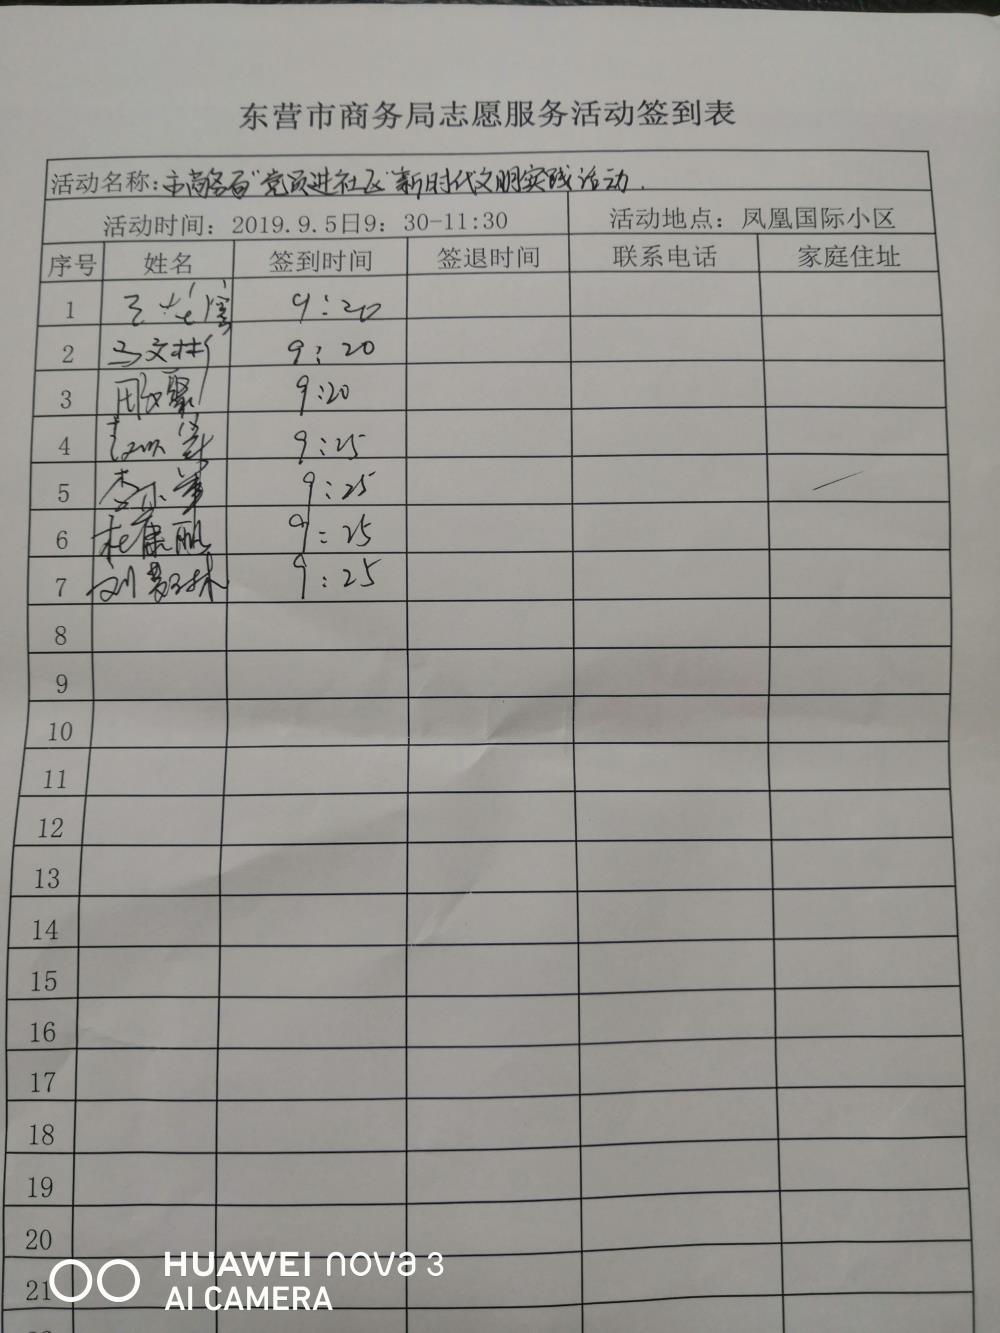 东营市商务局志愿服务活动签到表
活动名称:市商务局“党员进社区”新时代文明实践活动.
活动时间：2019.9.5日9：30-11:30 活动地点：凤凰国际小区
序号 姓名 签到时间 签退时间 联系电话 家庭住址
1 9:20
2 马文彬 9:20
3 9:20
4 9:25
5 9:25
6 杜康鹏 9:25
7 刘 林 9:25
8
9
10
11
12
13
14
15
16
17
18
19
20
21
HUAWEI nova 3
AI CAMERA